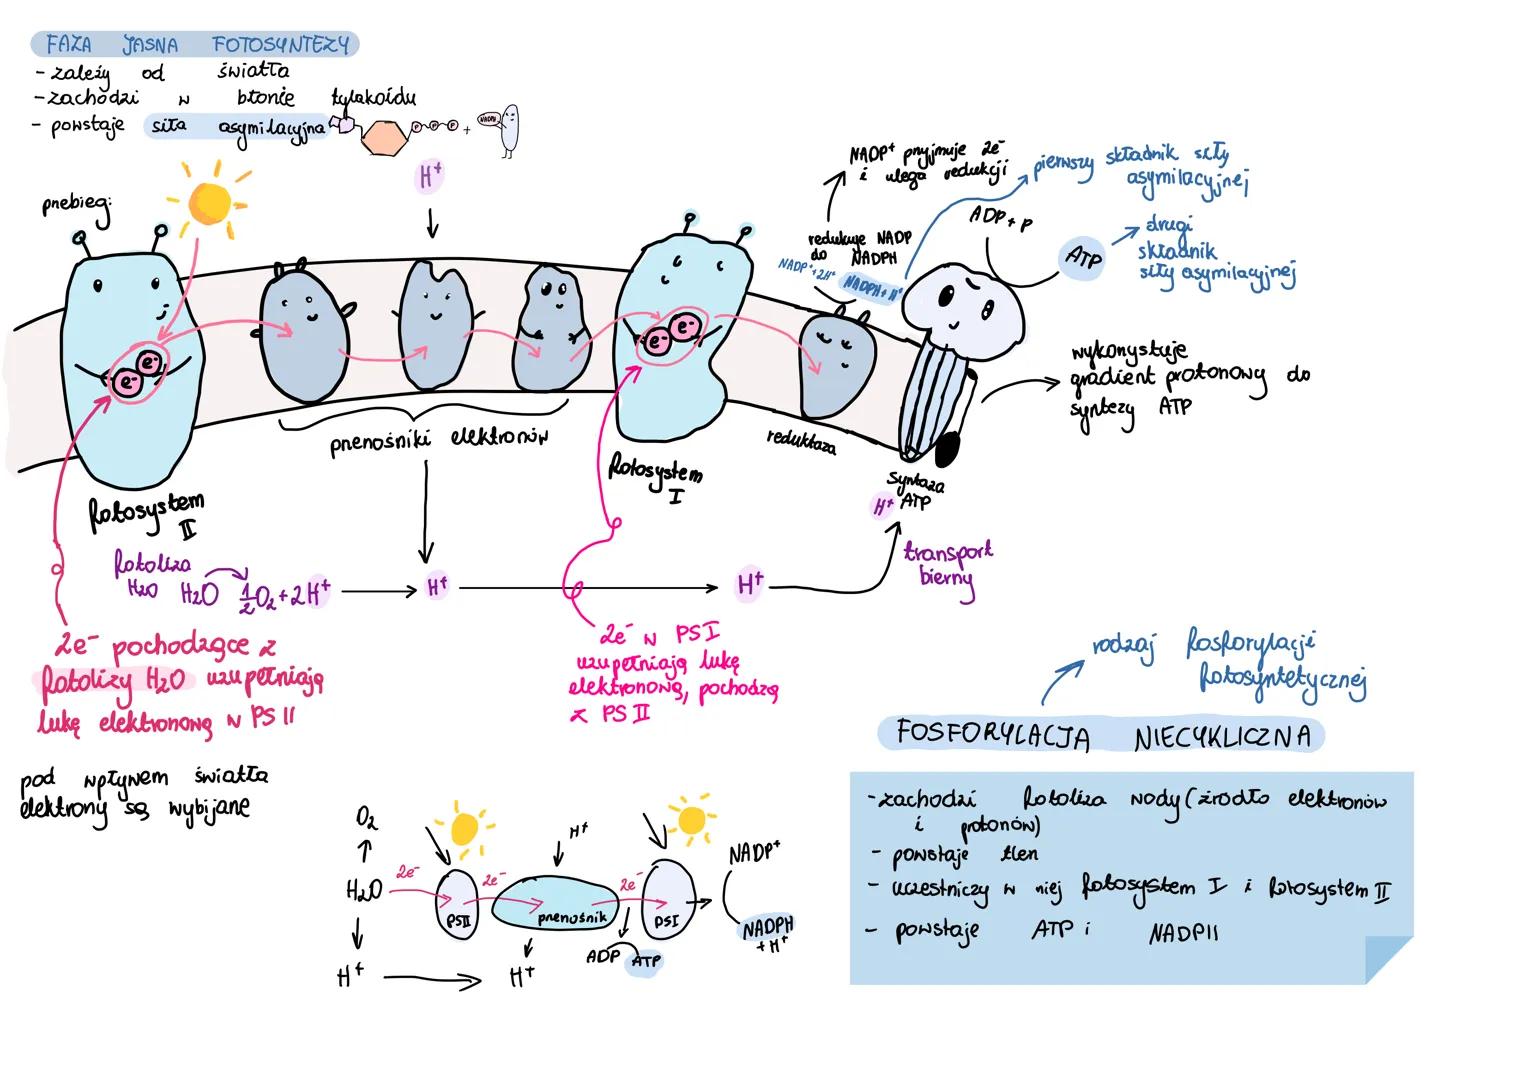 FAZA JASNA FOTOSYNTEZY
- zależy od światła
- zachodzi w błonie tylakoidu
- powstaje siła asymilacyjna
P P P + NADPH
przebieg:
H+
NADP+ przyjmuje 2e-
i ulega redukcji
pierwszy składnik siły
asymilacyjnej
ADP + P
redukuje NADP
do NADPH
NADP+ + 2H+
NADPH + H+
ATP
drugi
składnik
siły asymilacyjnej
e- e-
e- e-
wykorzystuje
gradient protonowy do
syntezy ATP
przenośniki elektronów
reduktaza
fotosystem
I
Syntaza
ATP
H+
fotosystem
II
transport
bierny
fotoliza
H2O H2O 1/2O2 + 2H+
H+
H+
2e- pochodzące z
fotolizy H2O uzupełniają
lukę elektronową w PS II
2e- w PSI
uzupełniają lukę
elektronową, pochodzą
z PS II
rodzaj fosforylacji
fotosyntetycznej
FOSFORYLACJA NIECYKLICZNA
pod wpływem światła
elektrony są wybijane
- zachodzi fotoliza wody (źródło elektronów
i protonów)
- powstaje tlen
- uczestniczy w niej fotosystem I i fotosystem II
- powstaje ATP i NADPH
O2
H+
NADP+
H2O 2e- 2e- 2e-
PSII przenośnik PSI
NADPH
+ H+
ADP ATP
H+ H+